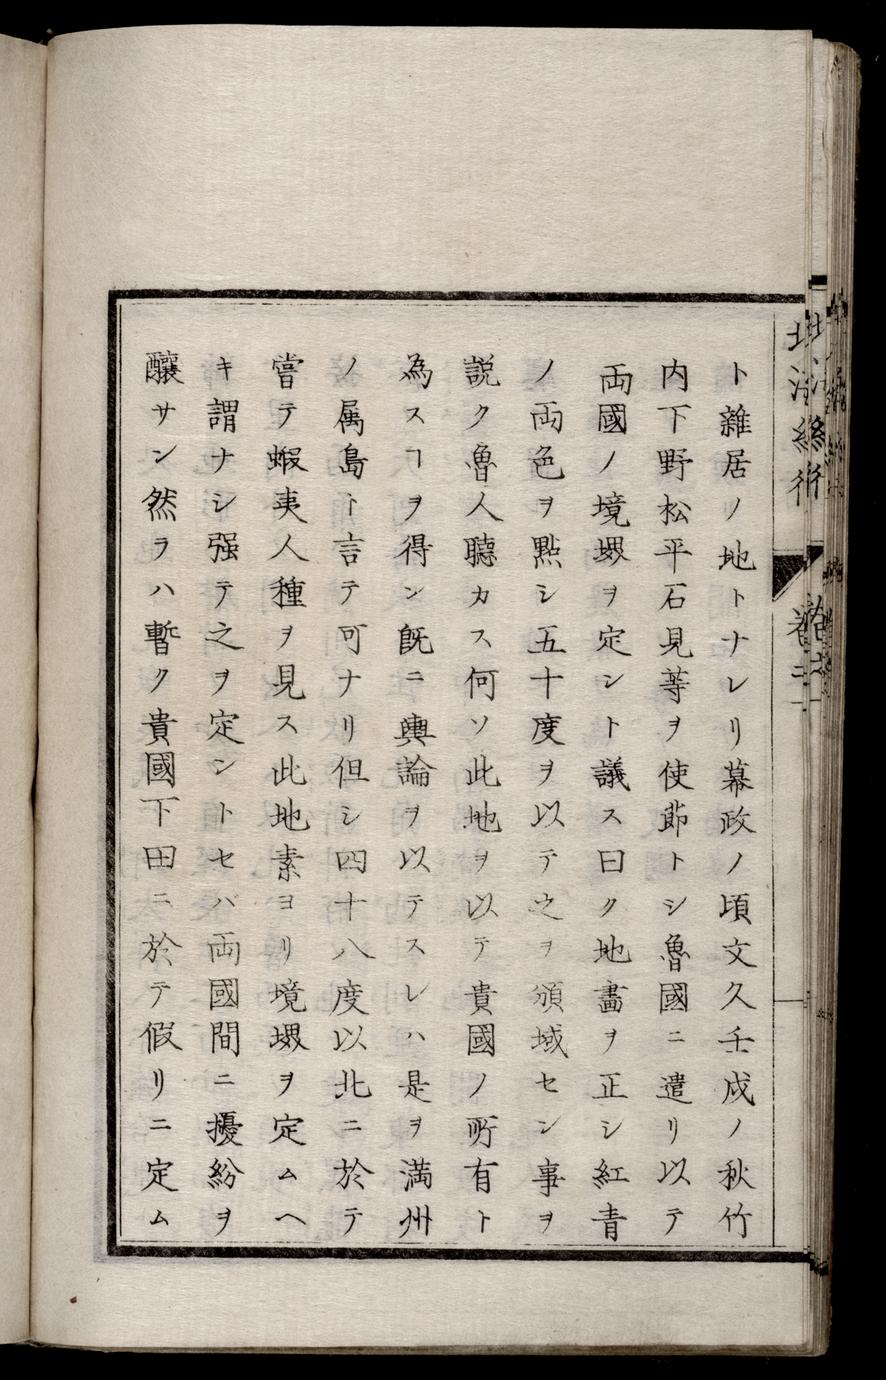 ト雜居ノ地トナレリ幕政ノ頃文久壬戌ノ秋竹
内下野松平石見等ヲ使節トシ魯國ニ遣リ以テ
両國ノ境堺ヲ定ント議ス曰ク地畵ヲ正シ紅青
ノ両色ヲ㸃シ五十度ヲ以テ之ヲ領域セン事ヲ
説ク魯人聽カス何ソ此地ヲ以テ貴國ノ所有ト
為スヿヲ得ン既ニ輿論ヲ以テスレハ是ヲ満州
ノ属島ト言テ可ナリ但シ四十八度以北ニ於テ
嘗テ蝦夷人種ヲ見ス此地素ヨリ境堺ヲ定ムヘ
キ謂ナシ强テ之ヲ定ントセバ両國間ニ擾紛ヲ
釀サン然ラハ暫ク貴國下田ニ於テ假リニ定ム